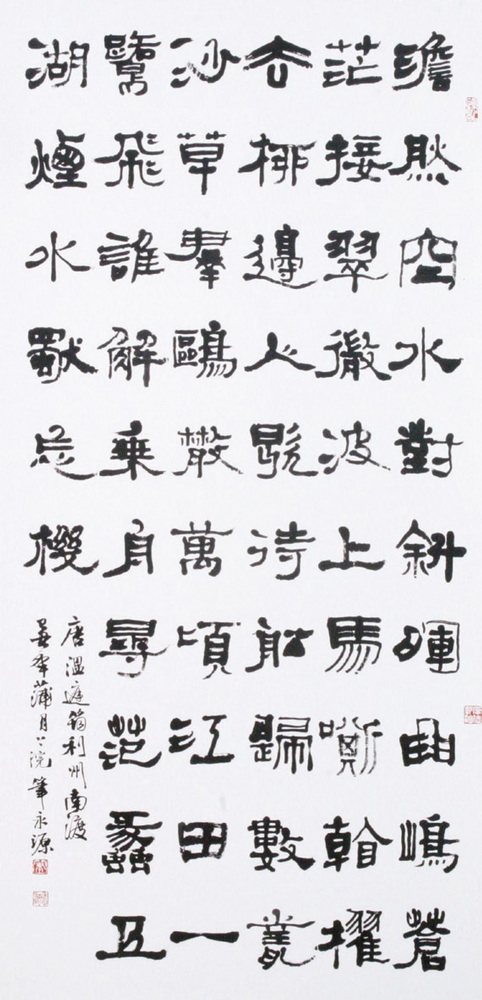 澹然空水對斜暉曲嶋蒼
茫接翠微波上馬嘶看櫂
去柳邊人歇待船歸數叢
沙草羣鷗散萬頃江田一
鷺飛誰解乘舟尋范蠡五
湖煙水獨忘機
唐溫庭筠利州南渡
蒲月浣筆永源